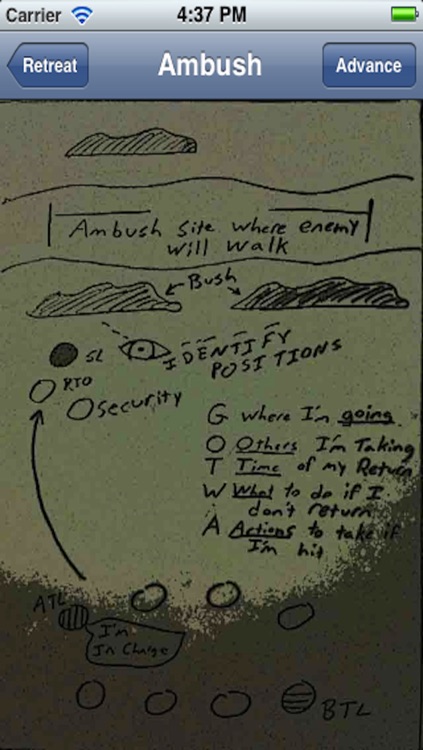 Carrier 4:37 PM
Retreat Ambush Advance
Ambush Site where enemy
will walk
Bush
SL IDENTIFY
POSITIONS
RTO
Security
G where I'm going
O Others I'm Taking
T Time of my Return
W What to do if I
don't return
A Actions to take if
I'm hit
ATL
I'm
In Charge
BTL